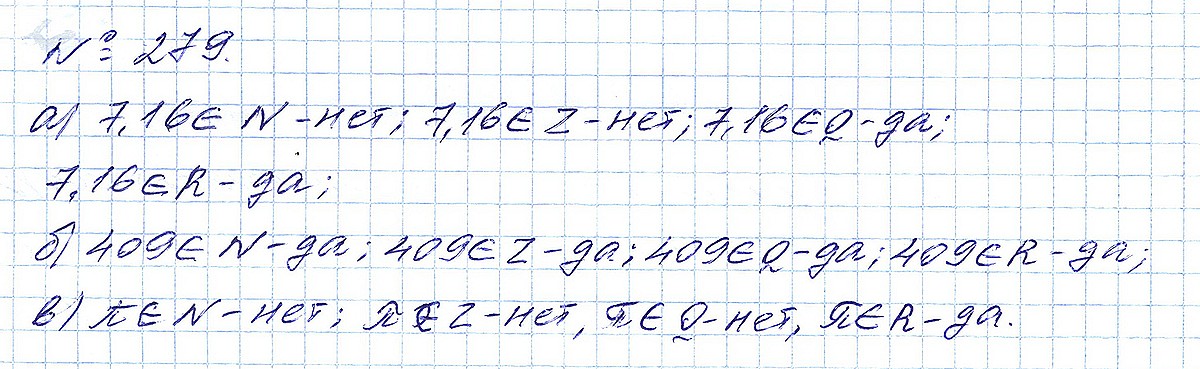 № 279.
а) 7,16 ∈ N - нет; 7,16 ∈ Z - нет; 7,16 ∈ Q - да;
7,16 ∈ R - да;
б) 409 ∈ N - да; 409 ∈ Z - да; 409 ∈ Q - да; 409 ∈ R - да;
в) π ∈ N - нет; π ∈ Z - нет, π ∈ Q - нет, π ∈ R - да.